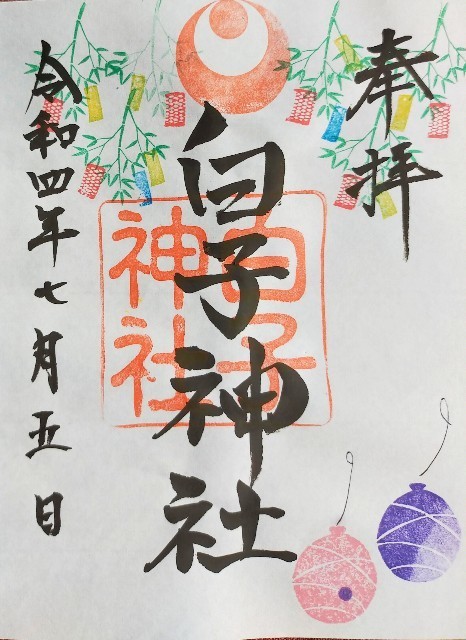 奉拝
白子神社
白子神社
令和四年七月五日